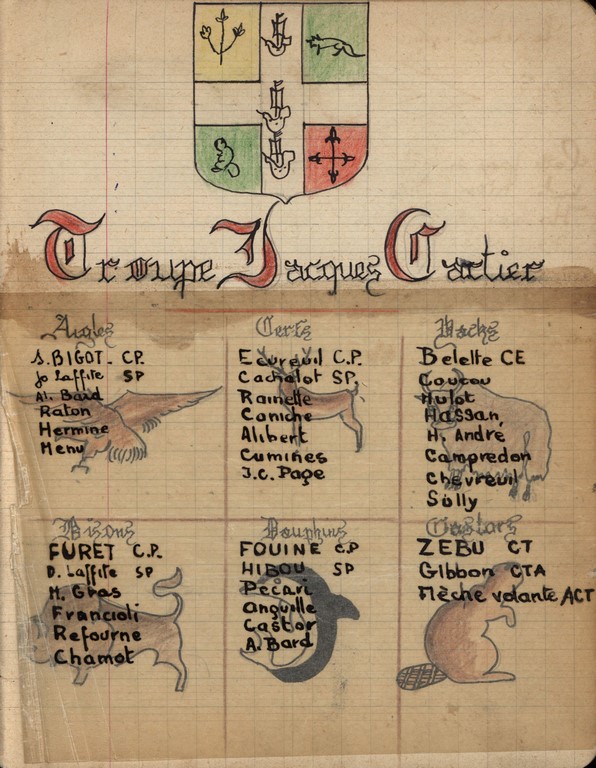 Troupe Jacques Cartier
Aigles
S. BIGOT - CP.
Jo Laffite SP
Al. Bard
Raton
Hermine
Menu
Cerfs
Ecureuil C.P.
Cachalot SP.
Rainette
Caniche
Alibert
Cumines
J.C. Page
Belette CE
Coucou
Hulot
Hassan,
H. André
Campredon
Chevreuil
Sully
Bisons
FURET C.P.
D. Laffite SP
M. Gras
Francioli
Refourne
Chamot
Dauphins
FOUINE C.P
HIBOU SP
Pécari
Anguille
Castor
A. Bard
Castors
ZEBU CT
Gibbon CTA
Mèche volante ACT